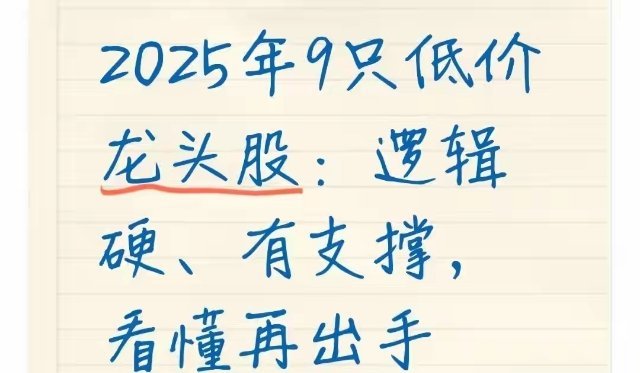 2025年9只低价
龙头股：逻辑
硬、有支撑，
看懂再出手